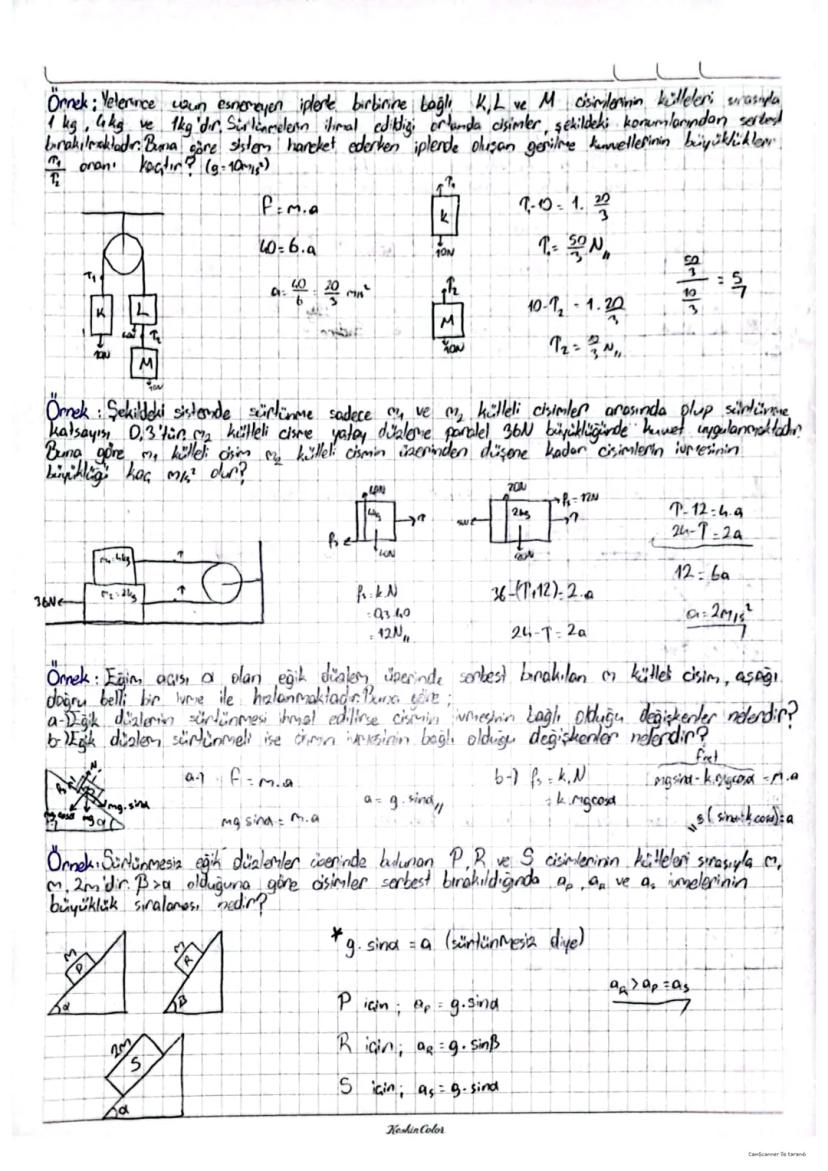 Örnek: Yeterince uzun esnemeyen iplerle birbirine bağlı K, L ve M cisimlerinin kütleleri sırasıyla
1 kg, 4kg ve 1kg'dır. Sürtünmelerin ihmal edildiği ortamda cisimler, şekildeki konumlarından serbest
bırakılmaktadır. Buna göre sistem hareket ederken iplerde oluşan gerilme kuvvetlerinin büyüklükleri
T₁/T₂ oranı kaçtır? (g=10m/s²)
T₁
K
L
10N
40N
T₂
M
10N
F=m.a
40=6.a
a=40/6=20/3 m/s²
T₁
K
10N
T₂
M
10N
T₁-10=1.20/3
T₁=50/3 N,,
10-T₂=1.20/3
T₂=10/3 N,,
50/3 / 10/3 = 5/7
Örnek: Şekildeki sistemde sürtünme sadece m₁ ve m₂ kütleli cisimler arasında olup sürtünme
katsayısı 0,3'tür. m₂ kütleli cisme yatay düzleme paralel 36N büyüklüğünde kuvvet uygulanmaktadır.
Buna göre m₁ kütleli cisim m₂ kütleli cismin üzerinden düşene kadar cisimlerin ivmesinin
büyüklüğü kaç m/s² dur?
m₁=4kg
m₂=2kg
36N
T
T
40N
4kg
T
fs
40N
20N
fs=12N
2kg
T
fs=k.N
=0,3.40
=12N,,
36-(T+12)=2.a
24-T=2a
T-12=4.a
24-T=2a
12=6a
a=2m/s²
Örnek: Eğim açısı α olan eğik düzlem üzerinde serbest bırakılan m kütleli cisim, aşağı
doğru belli bir ivme ile hızlanmaktadır. Buna göre;
a-)Eğik düzlemin sürtünmesi ihmal edilirse cismin ivmesinin bağlı olduğu değişkenler nelerdir?
b-)Eğik düzlem sürtünmeli ise cismin ivmesinin bağlı olduğu değişkenler nelerdir?
N
fs
mg.sinα
mg cosα
mg
α
a-)
F=m.a
mg sinα=m.a
a=g.sinα,,
b-) fs=k.N
=k.mgcosα
fnet
mgsinα-k.mgcosα=m.a
g(sinα-k.cosα)=a
Örnek: Sürtünmesiz eğik düzlemler üzerinde bulunan P, R ve S cisimlerinin kütleleri sırasıyla m,
m, 2m'dir. β>α olduğuna göre cisimler serbest bırakıldığında aₚ, aᵣ ve aₛ ivmelerinin
büyüklük sıralaması nedir?
m
P
α
m
R
β
2m
S
α
* g.sinα=a (sürtünmesiz diye)
P için; aₚ=g.sinα
R için; aᵣ=g.sinβ
S için; aₛ=g.sinα
aᵣ>aₚ=aₛ
KeskinColor
CamScanner ile tarandı